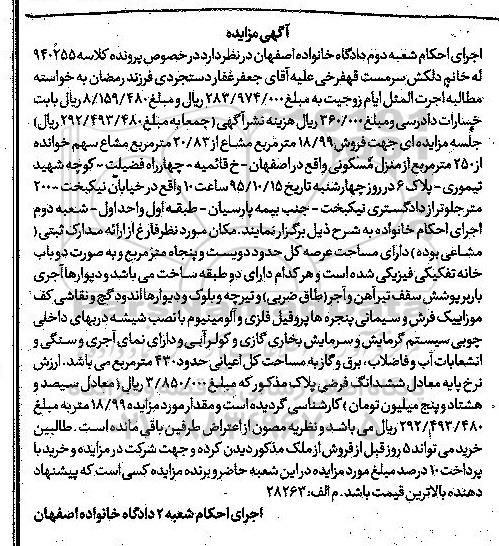 آگهی مزایده
اجرای احکام شعبه دوم دادگاه خانواده اصفهان در نظر دارد در خصوص پرونده کلاسه ۹۴۰۲۵۵
له خانم دلکش سرمست قهفرخی علیه آقای جعفر غفار دستجردی فرزند رمضان به خواسته
مطالبه اجرت المثل ایام زوجیت به مبلغ ۲۸۳/۹۷۴/۰۰۰ ریال و مبلغ ۸/۱۵۹/۴۸۰ ریال بابت
خسارات دادرسی و مبلغ ۳۶۰/۰۰۰ ریال هزینه نشر آگهی (جمعا به مبلغ ۲۹۲/۴۹۳/۴۸۰ ریال)
جلسه مزایده ای جهت فروش ۱۸/۹۹ مترمربع مشاع از ۲۰/۸۳ مترمربع مشاع سهم خوانده
از ۲۵۰ مترمربع از منزل مسکونی واقع در اصفهان - خ قائمیه - چهارراه فضیلت - کوچه شهید
تیموری - پلاک ۶ در روز چهارشنبه تاریخ ۹۵/۱۰/۱۵ ساعت ۱۰ واقع در خیابان نیکبخت - ۲۰۰
متر جلوتر از دادگستری نیکبخت - جنب بیمه پارسیان - طبقه اول واحد اول - شعبه دوم
اجرای احکام خانواده به شرح ذیل برگزار نمایند. مکان مورد نظر فارغ از ارائه مدارک ثبتی (
مشاعی بوده) دارای مساحت عرصه کل حدود دویست و پنجاه مترمربع و به صورت دو باب
خانه تفکیکی فیزیکی شده است و هر کدام دارای دو طبقه ساخت می باشد و دیوارها آجری
باربر پوشش سقف تیرآهن و آجر (طاق ضربی) و تیرچه و بلوک و دیوارها اندود گچ و نقاشی کف
موزاییک فرش و سیمانی پنجره ها پروفیل فلزی و آلومینیوم با نصب شیشه دربهای داخلی
چوبی سیستم گرمایش و سرمایش بخاری گازی و کولر آبی و دارای نمای آجری و سنگی و
انشعابات آب و فاضلاب، برق و گاز به مساحت کل اعیانی حدود ۴۳۰ مترمربع می باشد. ارزش
نرخ پایه معادل ششدانگ فرضی پلاک مذکور که مبلغ ۳/۸۵۰/۰۰۰ ریال (معادل سیصد و
هشتاد و پنج میلیون تومان) کارشناسی گردیده است و مقدار مورد مزایده ۱۸/۹۹ متر به مبلغ
۲۹۲/۴۹۳/۴۸۰ ریال می باشد و نظریه مصون از اعتراض طرفین باقی مانده است. طالبین
خرید می تواند ۵ روز قبل از فروش از ملک مذکور دیدن کرده و جهت شرکت در مزایده و خرید با
پرداخت ۱۰ درصد مبلغ مورد مزایده در این شعبه حاضر و برنده مزایده کسی است که پیشنهاد
دهنده بالاترین قیمت باشد. م الف: ۲۸۲۶۳
اجرای احکام شعبه ۲ دادگاه خانواده اصفهان